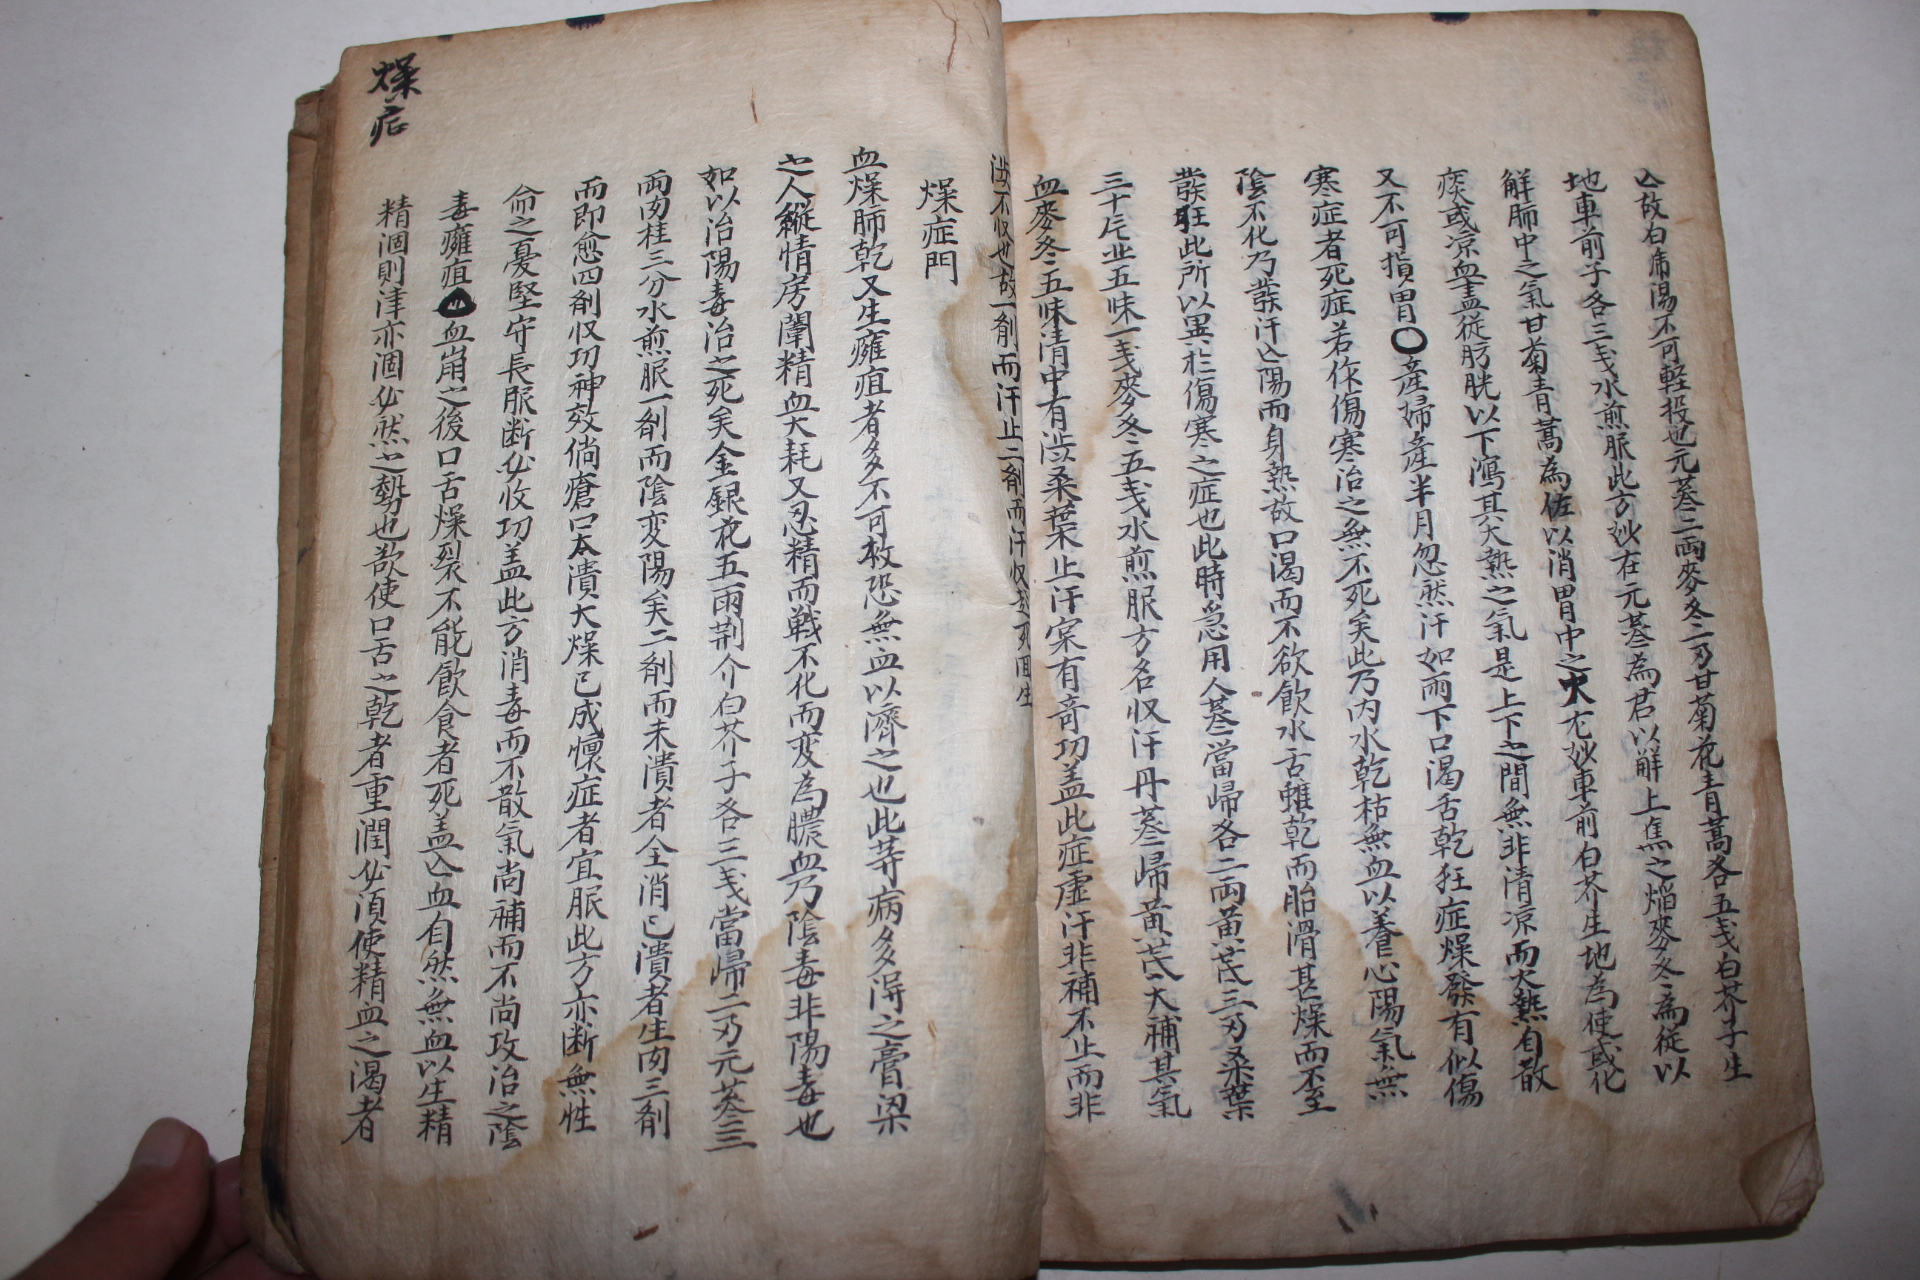 亾故白席湯不可軽投也元葠二兩麥冬二乃甘菊花青蒿各五戔白芥子生
地車前子各三戔水煎服此方妙在元葠為君以解上焦之焰麥冬為從以
解肺中之氣甘菊青蒿為佐以消胃中之火尤妙車前白芥生地為使或化
痰或凉血盖從肪胱以下瀉其大熱之氣是上下之間無非清凉而大熱自散
又不可損胃○産婦産半月忽然汗如雨下口渴舌乾狂症燥發有似傷
寒症者死症若作傷寒治之無不死矣此乃内水乾枯無血以養心陽氣無
陰不化乃發汗亾陽而身熱故口渴而不欲飮水舌雖乾而胎滑甚燥而不至
發狂此所以異於傷寒之症也此時急用人葠當歸各二兩黄芪三乃桑葉
三十片北五味一戔麥冬五戔水煎服方名収汗丹葠歸黄芪大補其氣
血麥冬五味清中有澁桑葉止汗寔有奇功盖此症虛汗非補不止而非
澁不収也故一劑而汗止二劑而汗収起死回生
燥症門
血燥肺乾又生癰疽者多不可救恐無血以濟之也此等病多得之膏梁
之人縱情房闈精血大耗又忍精而戰不化而変為膿血乃陰毒非陽毒也
如以治陽毒治之死矣金銀花五兩荆介白芥子各三戔當歸二乃元葠三
兩肉桂三分水煎服一劑而陰変陽矣二劑而未潰者全消已潰者生肉三劑
而即愈四劑収功神效倘瘡口本潰大燥已成懷症者宜服此方亦断無性
命之憂堅守長服断必收功盖此方消毒而不散氣尚補而不尚攻治之陰
毒癰疽 血崩之後口舌燥裂不能飮食者死盖亾血自然無血以生精
精涸則津亦涸必然之勢也欲使口舌之乾者重潤必須使精血之渴者
燥症